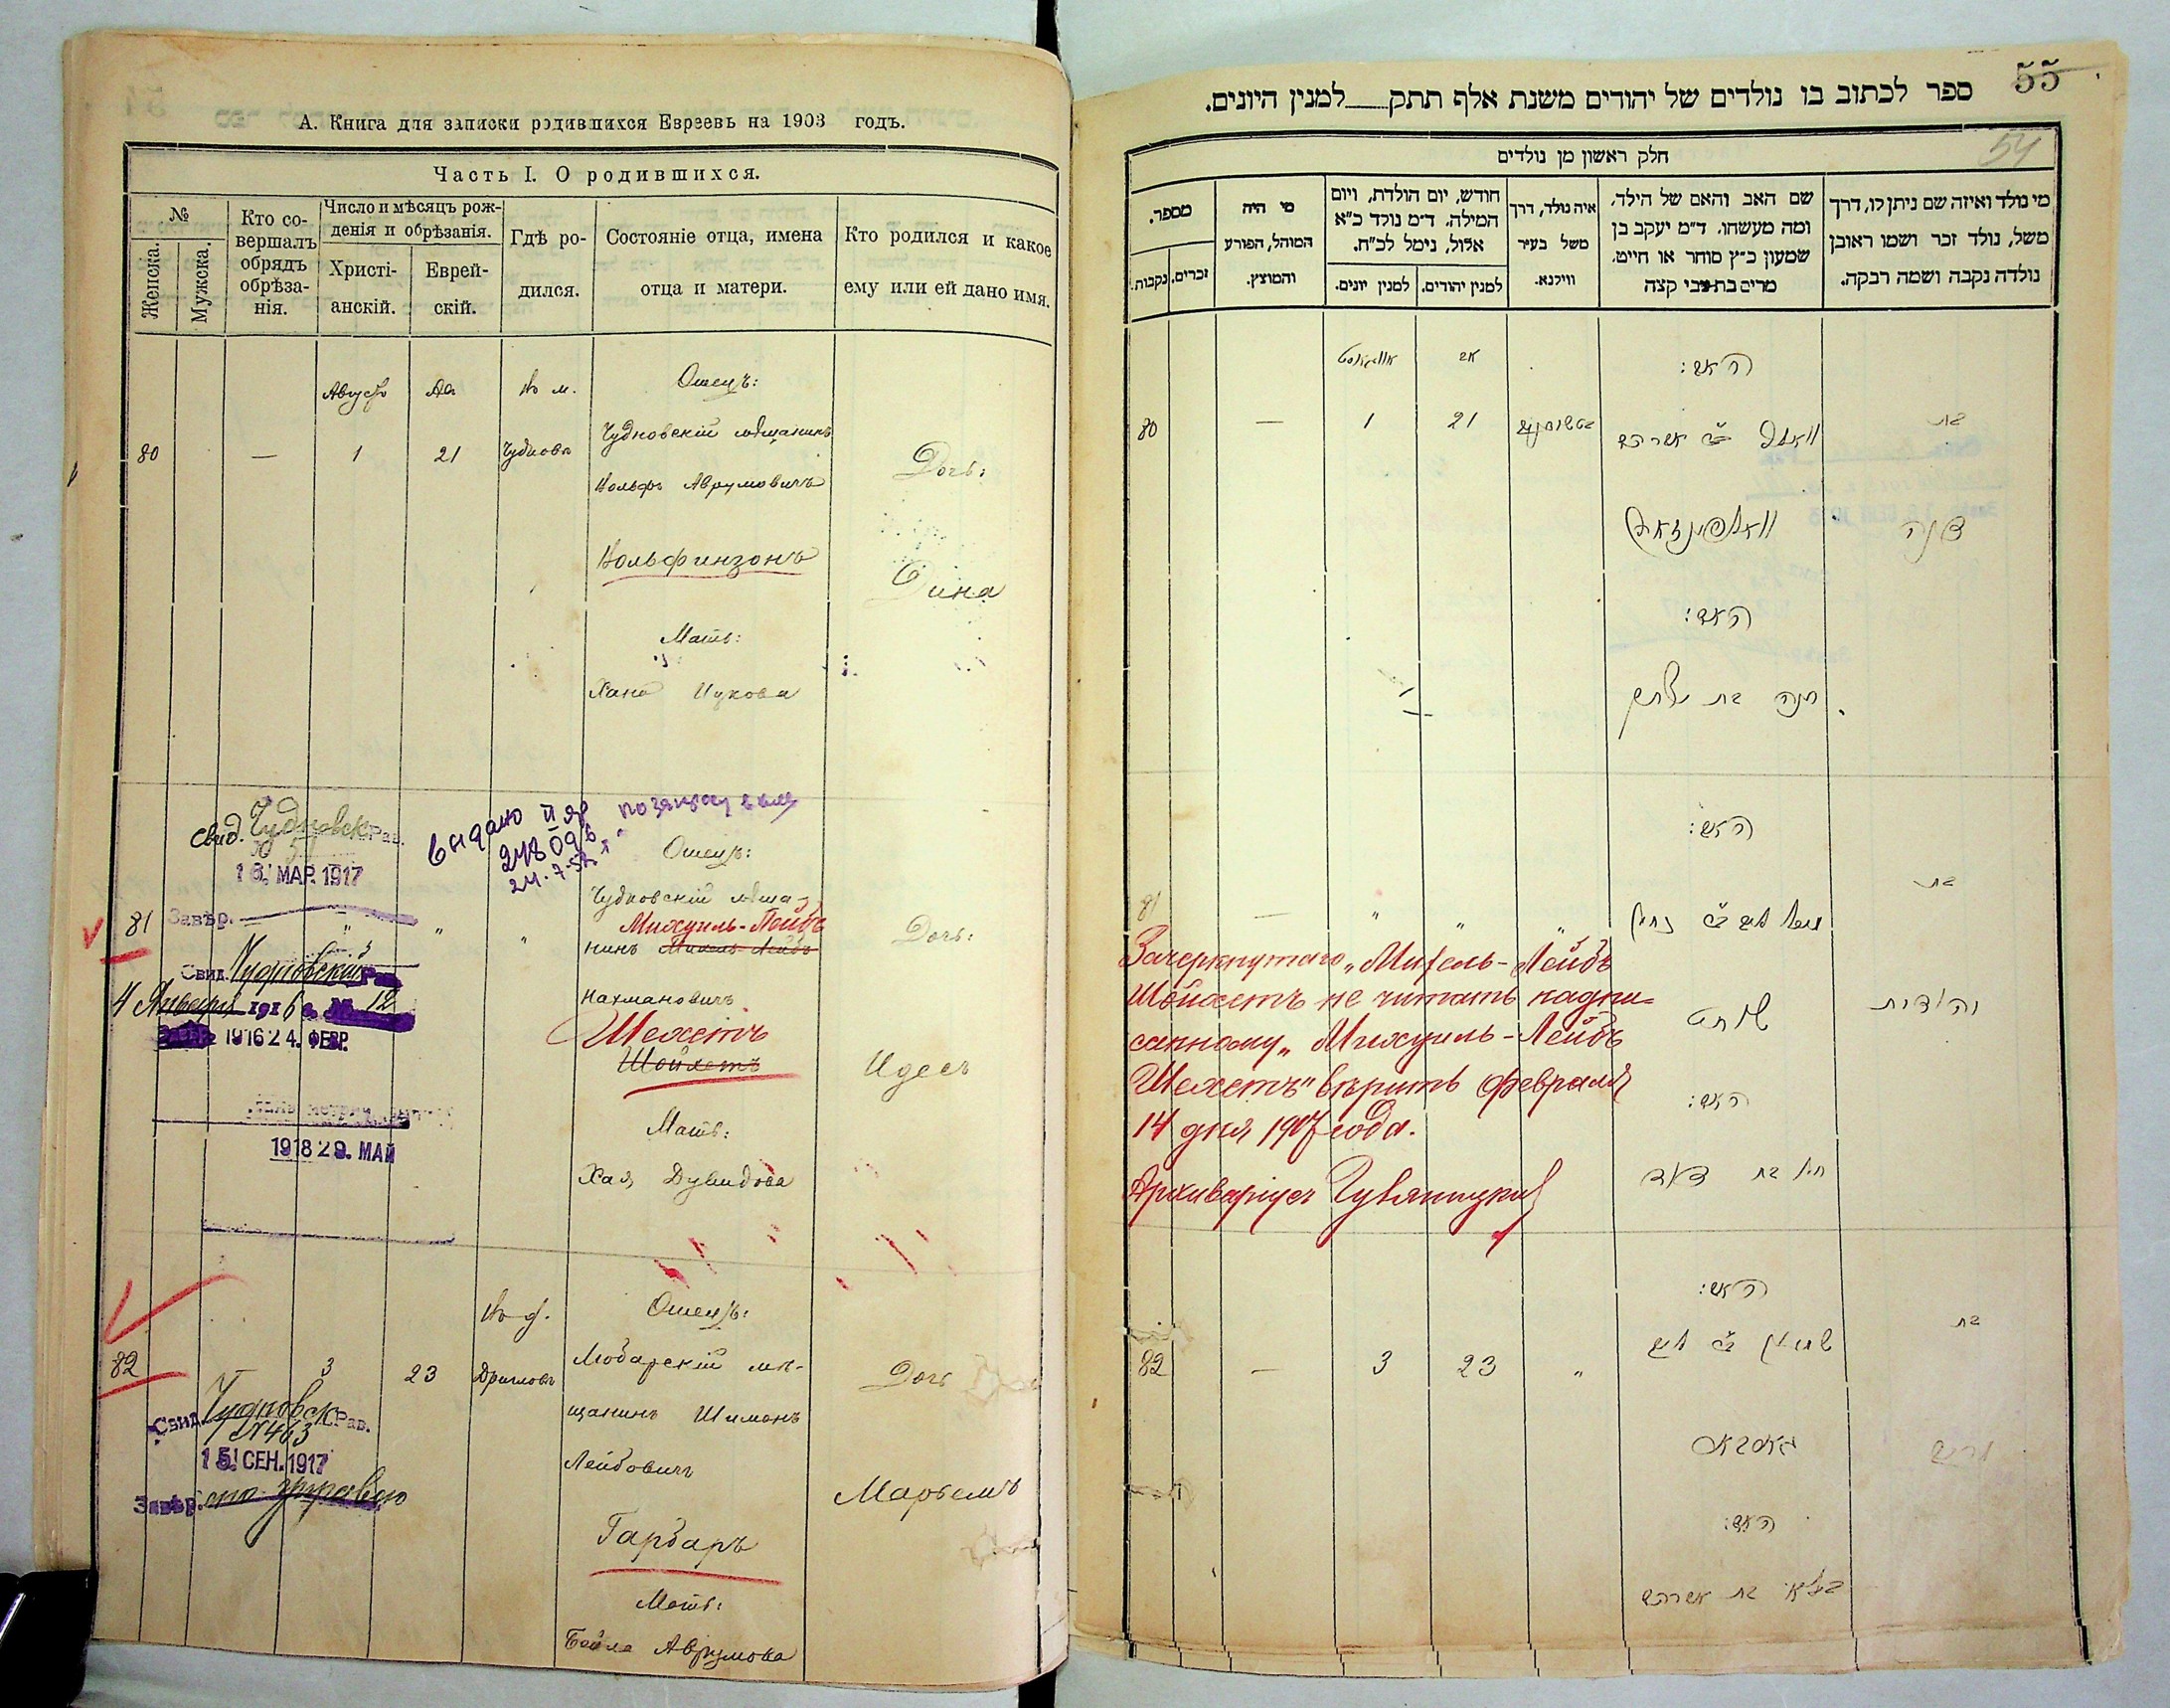 А. Книга для записки родившихся Евреевъ на 1903 годъ.
Часть I. О родившихся.
№
Женска.
Мужска.
Кто со-
вершалъ
обрядъ
обрѣза-
нія.
Число и мѣсяцъ рож-
денія и обрѣзанія.
Христі-
анскій.
Еврей-
скій.
Гдѣ ро-
дился.
Состояніе отца, имена
отца и матери.
Кто родился и какое
ему или ей дано имя.
Августъ Ав Въ м. Отецъ:
80 — 1 21 Чудновъ Чудновскій мѣщанинъ
Вольфъ Аврумовичъ
Дочь:
Вольфинзонъ
Дина
Мать:
Хана Ицкова
Свид. Чудновск Рав.
16. МАР. 1917
Завѣр.
видано
24.7.52
Отецъ:
81 " " " Чудновскій мѣща-
Михуиль-Лейбъ
нинъ Михель-Лейбъ
Дочь:
Нахмановичъ
Шехетъ
Шойхетъ
Идесъ
Мать:
Хая Дувидова
Свид. Чудновскій Рав
4 Января 1916 г. № 12
1916 24. ФЕВР.
1918 29. МАЙ
Въ д. Отецъ:
82 3 23 Дриглов Любарскій мѣ-
щанинъ Шимонъ
Дочь
Лейбовичъ
Марьемъ
Гарбаръ
Мать:
Бейла Аврумова
Свид. Чудновск Рав.
№463
15. СЕН. 1917
Завѣр.
55
ספר לכתוב בו נולדים של יהודים משנת אלף תתק למנין היונים.
54
חלק ראשון מן נולדים
מי נולד ואיזה שם ניתן לו, דרך
משל, נולד זכר ושמו ראובן
נולדה נקבה ושמה רבקה.
שם האב והאם של הילד,
ומה מעשהו. ד״מ יעקב בן
שמעון כ״ץ סוחר או חייט,
מרים בת צבי קצה
איה נולד, דרך
משל בעיר
ווילנא.
חודש, יום הולדת, ויום
המילה. ד״מ נולד כ״א
אלול, נימל לכ״ח.
למנין יהודים.
למנין יונים.
מי היה
המוהל, הפורע
והמוצץ.
מספר.
זכרים.
נקבות.
אויגוסט אב האב:
80 — 1 21 וואלף ב״ר אברהם בת
וואלפינזאן דינה
האם:
חנה בת יצחק
האב:
81 — " " " בת
Зачеркнутаго „Михель-Лейбъ
Шойхетъ не читать надпи-
санному „Михуиль-Лейбъ
Шехетъ" вѣрить Февраля
14 дня 1907 года.
Архиваріусъ
שוחט
יהודית
האם:
חי׳ בת דוד
האב:
82 — 3 23 " שמעון ב״ר לייב בת
גארבאר
האם:
ביילא בת אברהם